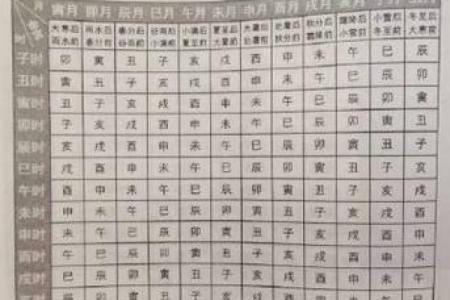 月 寅月 卯月 辰月 巳月 午月 未月 申月
时
大寒后 雨水后 春分后 谷雨后 小满后 夏至后 大暑后 处暑后 秋分后 霜降后 小雪后 冬至后
雨水前 春分前 谷雨前 小满前 夏至前 大暑前 处暑前 秋分前 霜降前 小雪前 冬至前 大寒前
子时 卯 寅 丑 子 亥 戌 酉 申 未 午 巳 辰
丑时 寅 丑 子 亥 戌 酉 申 未 午 巳 辰 卯
寅时 丑 子 亥 戌 酉 申 未 午 巳 辰 卯 寅
卯时 子 亥 戌 酉 申 未 午 巳 辰 卯 寅 丑
辰时 亥 戌 酉 申 未 午 巳 辰 卯 寅 丑 子
巳时 戌 酉 申 未 午 巳 辰 卯 寅 丑 子 亥
午时 酉 申 未 午 巳 辰 卯 寅 丑 子 亥 戌
未时 申 未 午 巳 辰 卯 寅 丑 子 亥 戌 酉
申时 未 午 巳 辰 卯 寅 丑 子 亥 戌 酉 申
酉时 午 巳 辰 卯 寅 丑 子 亥 戌 酉 申 未
戌时 巳 辰 卯 寅 丑 子 亥 戌 酉 申 未 午